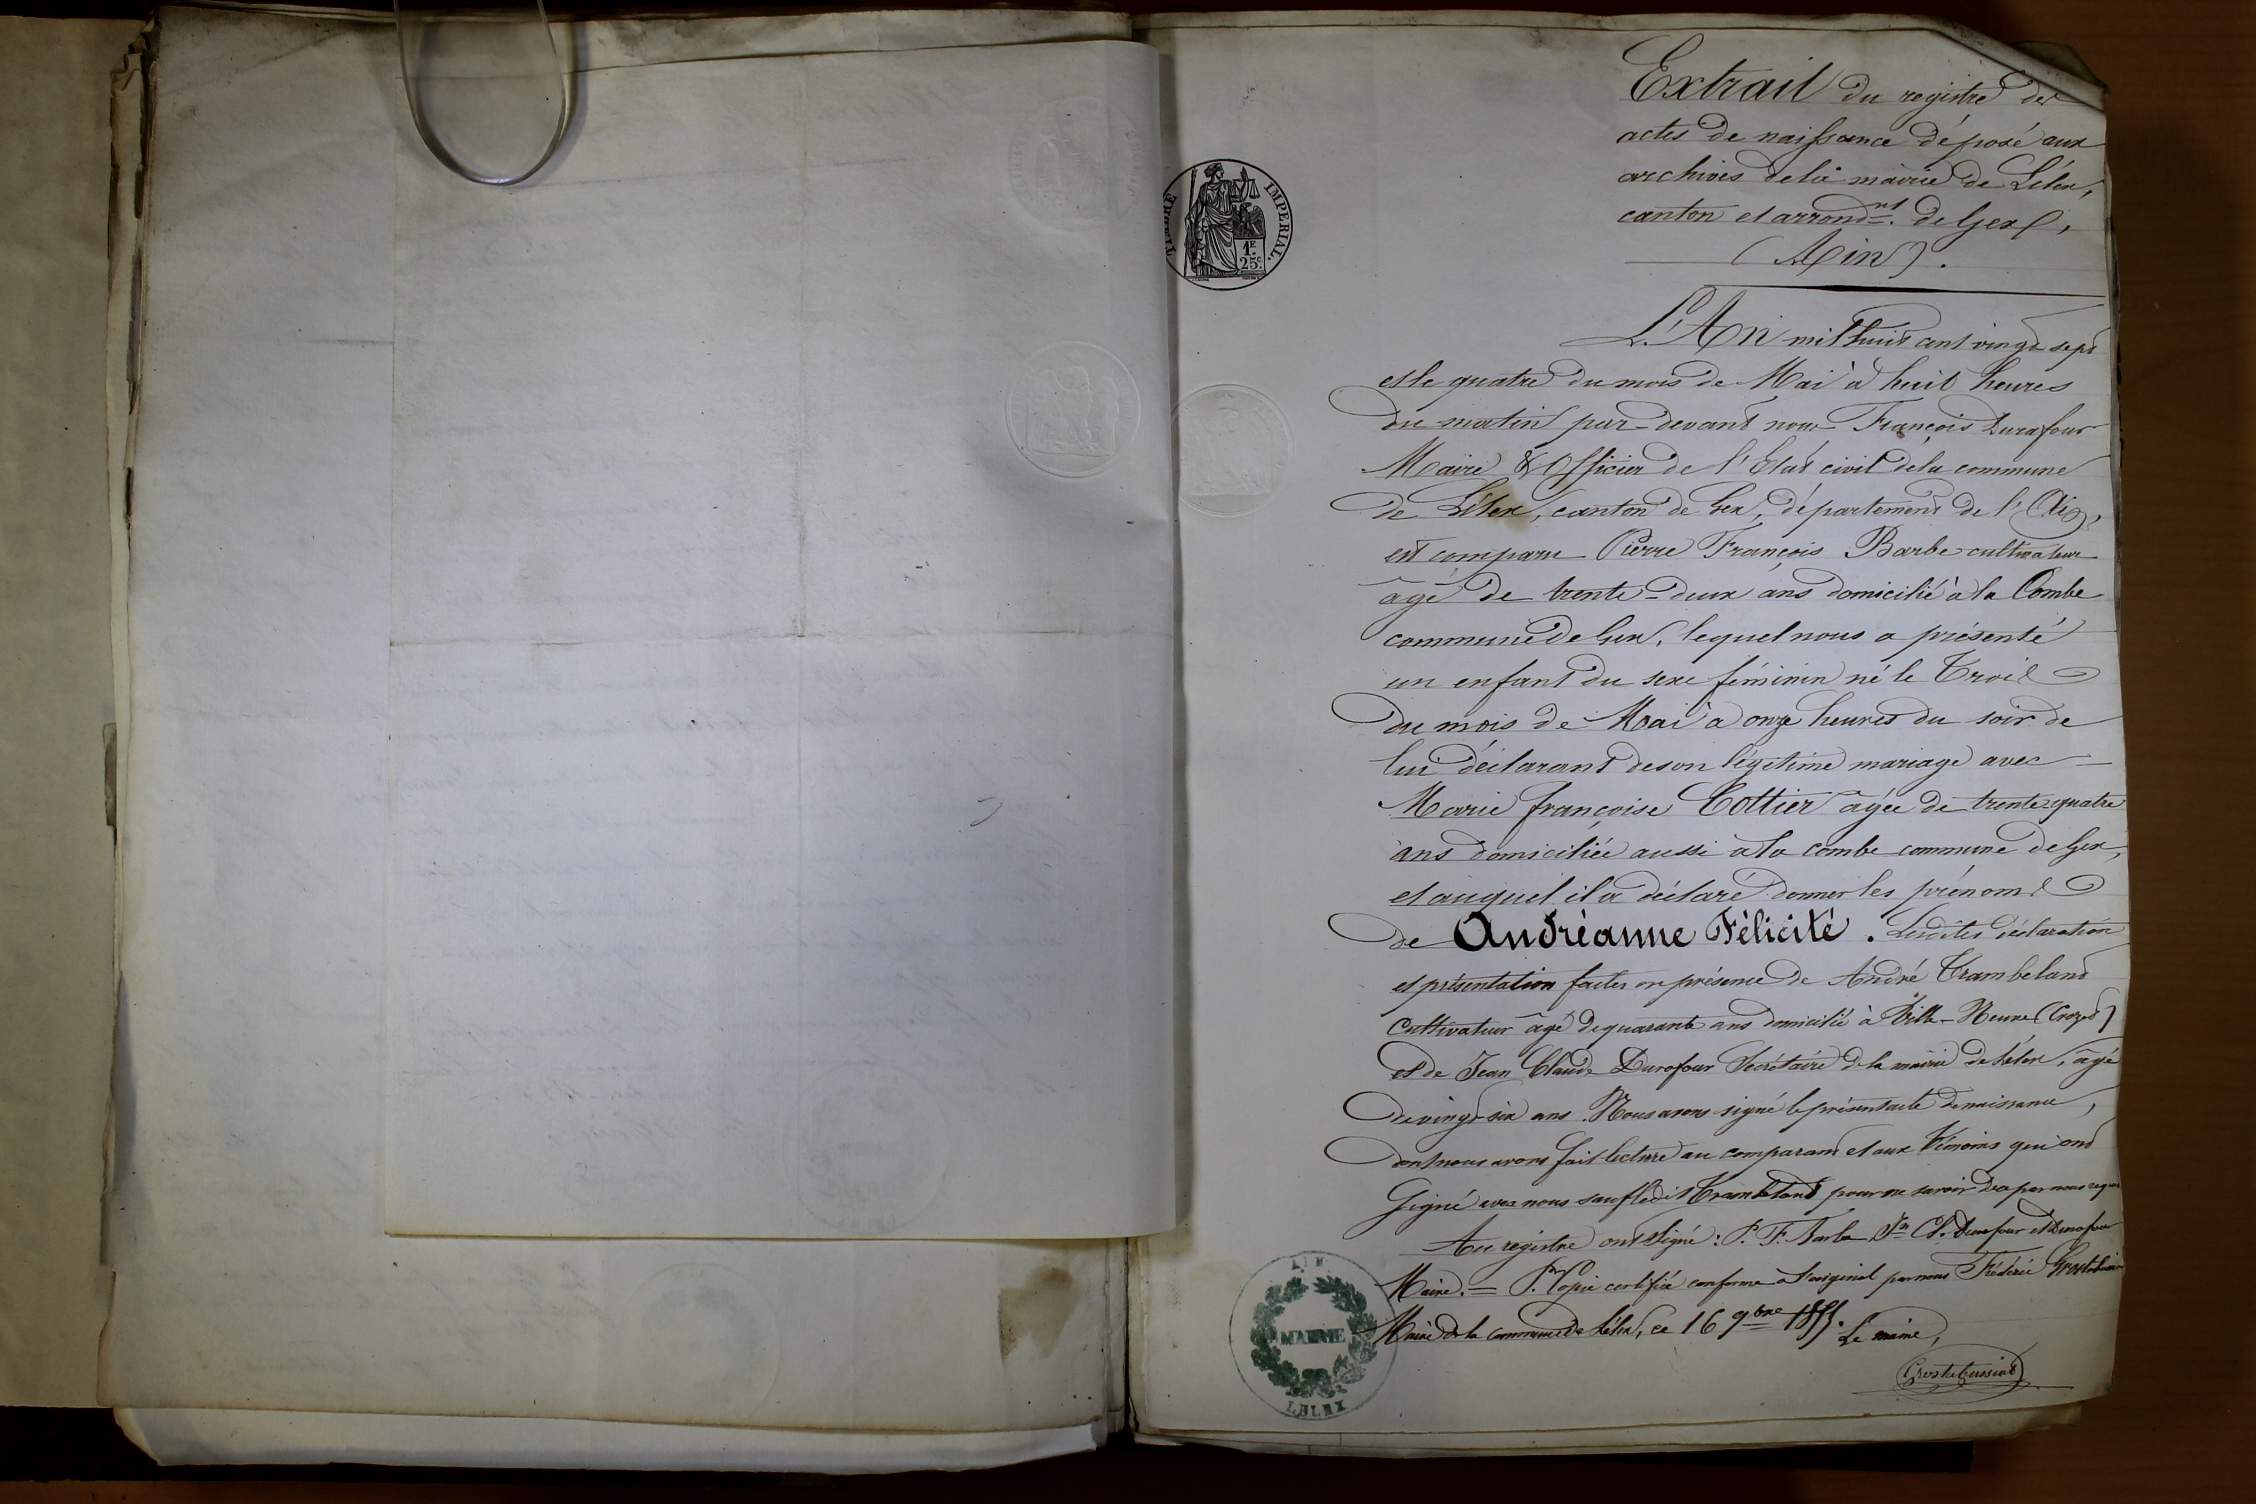 Extrait du registre des
actes de naissance déposé aux
archives de la mairie de Lélex,
canton et arrondnt. de Gex,
(Ain).
TIMBRE IMPERIAL.
1F.
25c.
L'An mil huit cent vingt sept
et le quatre du mois de Mai à huit heures
du matin par-devant nous François Durafour
Maire & Officier de l'Etat civil de la commune
de Lélex, canton de Gex, département de l'Ain,
est comparu Pierre François Barbe cultivateur
âgé de trente-deux ans domicilié à la Combe
commune de Gex, lequel nous a présenté
un enfant du sexe féminin né le Trois
du mois de Mai à onze heures du soir de
lui déclarant de son légitime mariage avec
Marie françoise Cottier âgée de trente-quatre
ans domiciliée aussi à la combe commune de Gex,
et auquel il a déclaré donner les prénoms
de Andréanne Félicité. Lesdites déclaration
et présentation faites en présence de André Trambeland
Cultivateur âgé de quarante ans domicilié à Ville-Neuve (Crozet)
et de Jean Claude Durafour Secrétaire de la mairie de Lélex, âgé
de vingt-six ans. Nous avons signé le présent acte de naissance,
dont nous avons fait lecture au comparant et aux témoins qui ont
Signé avec nous sauf ledit Trambeland pour ne savoir de ce par nous requis
Au registre ont Signé : P. F. Barbe, Jn Cl. Durafour et Durafour
Maire. = Pr. Copie certifiée conforme à l'original par nous Frédéric Grostabussiat
Maire de la commune de Lélex, ce 16 9bre 1855.
Le maire,
Grostabussiat
AIN
MAIRIE
LELEX